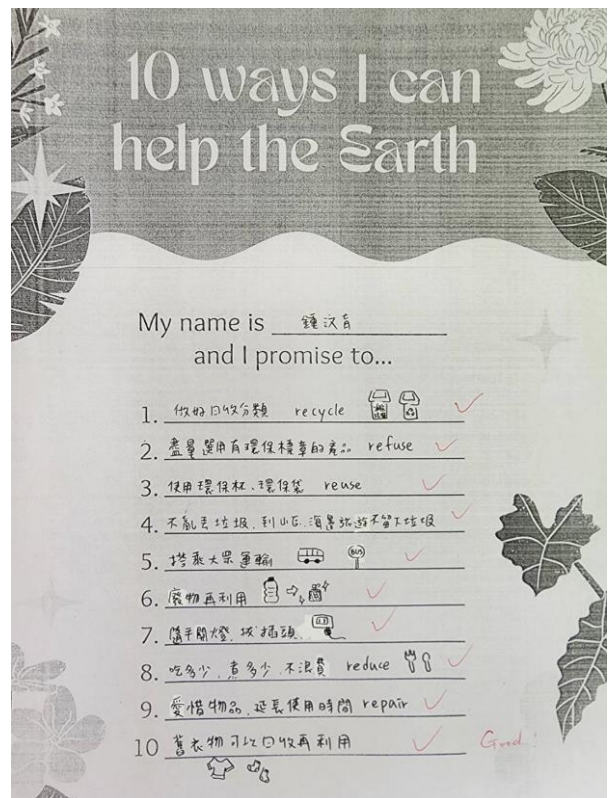 10 ways I can
help the Earth
My name is 鍾汶育
and I promise to...
1. 做好回收分類 recycle
2. 盡量選用有環保標章的產品 refuse
3. 使用環保杯、環保袋 reuse
4. 不亂丟垃圾,到山區、海邊旅遊不留下垃圾
5. 搭乘大眾運輸 BUS
6. 廢物再利用
7. 隨手關燈、拔插頭
8. 吃多少,煮多少,不浪費 reduce
9. 愛惜物品,延長使用時間 repair
10 舊衣物可以回收再利用
Good!